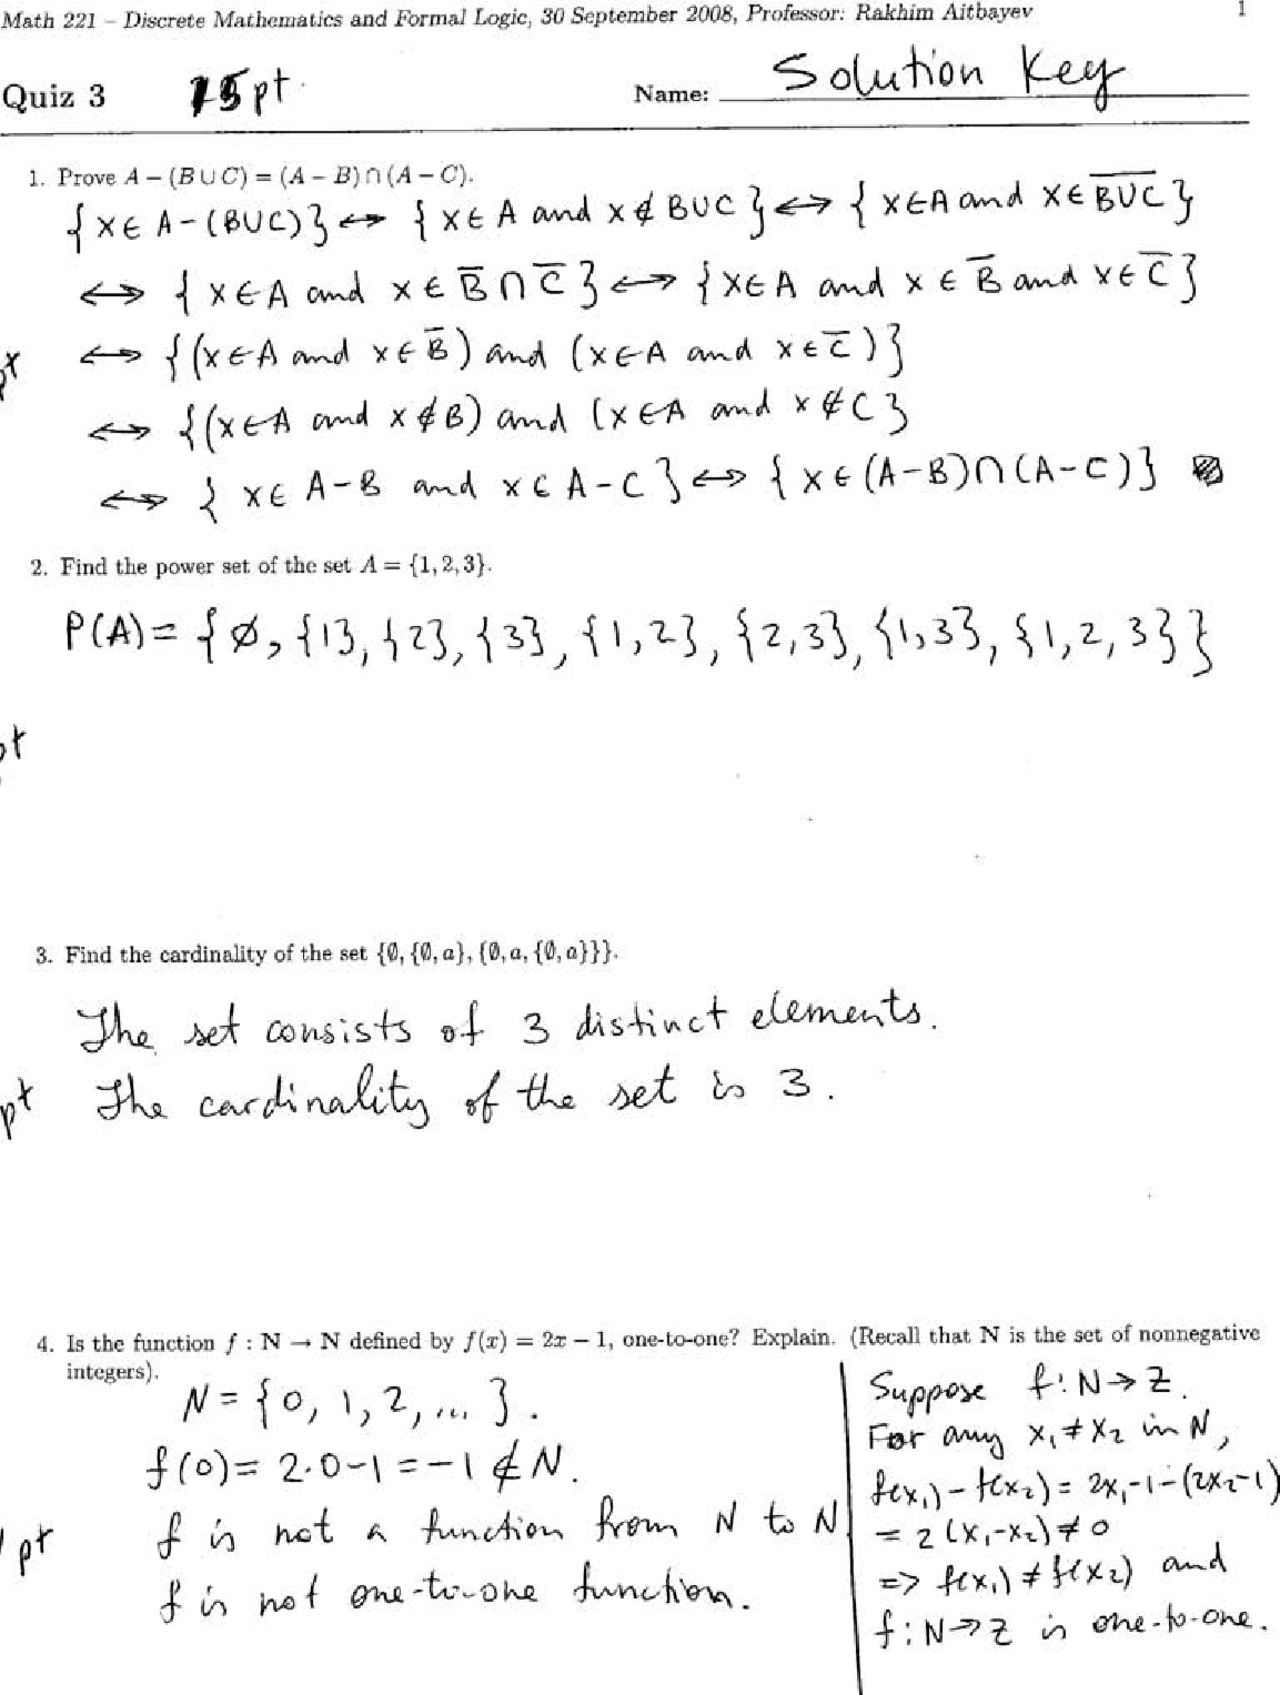 Math 221 – Discrete Mathematics and Formal Logic, 30 September 2008, Professor: Rakhim Aitbayev 1
Quiz 3 15pt. Name: Solution Key
1. Prove A − (B ∪ C) = (A − B) ∩ (A − C).
{x ∈ A-(B∪C)} ↔ {x ∈ A and x ∉ B∪C} ↔ {x∈A and x∈ \overline{B∪C}}
↔ {x∈A and x ∈ B̅ ∩ C̅} ↔ {x∈A and x ∈ B̅ and x∈C̅}
↔ {(x∈A and x∈B̅) and (x∈A and x∈C̅)}
↔ {(x∈A and x∉B) and (x∈A and x∉C}
↔ {x∈ A-B and x∈A-C} ↔ {x∈(A-B)∩(A-C)}
2. Find the power set of the set A = {1, 2, 3}.
P(A) = {∅, {1}, {2}, {3}, {1,2}, {2,3}, {1,3}, {1,2,3}}
pt
3. Find the cardinality of the set {∅, {∅, a}, {∅, a, {∅, a}}}.
The set consists of 3 distinct elements.
pt The cardinality of the set is 3.
4. Is the function f : N → N defined by f(x) = 2x − 1, one-to-one? Explain. (Recall that N is the set of nonnegative
integers).
N = {0, 1, 2, ... }.
f(0) = 2·0-1 = -1 ∉ N.
f is not a function from N to N
pt
f is not one-to-one function.
Suppose f: N→Z.
For any x₁≠x₂ in N,
f(x₁) - f(x₂) = 2x₁-1-(2x₂-1)
= 2(x₁-x₂) ≠ 0
=> f(x₁) ≠ f(x₂) and
f: N→Z is one-to-one.